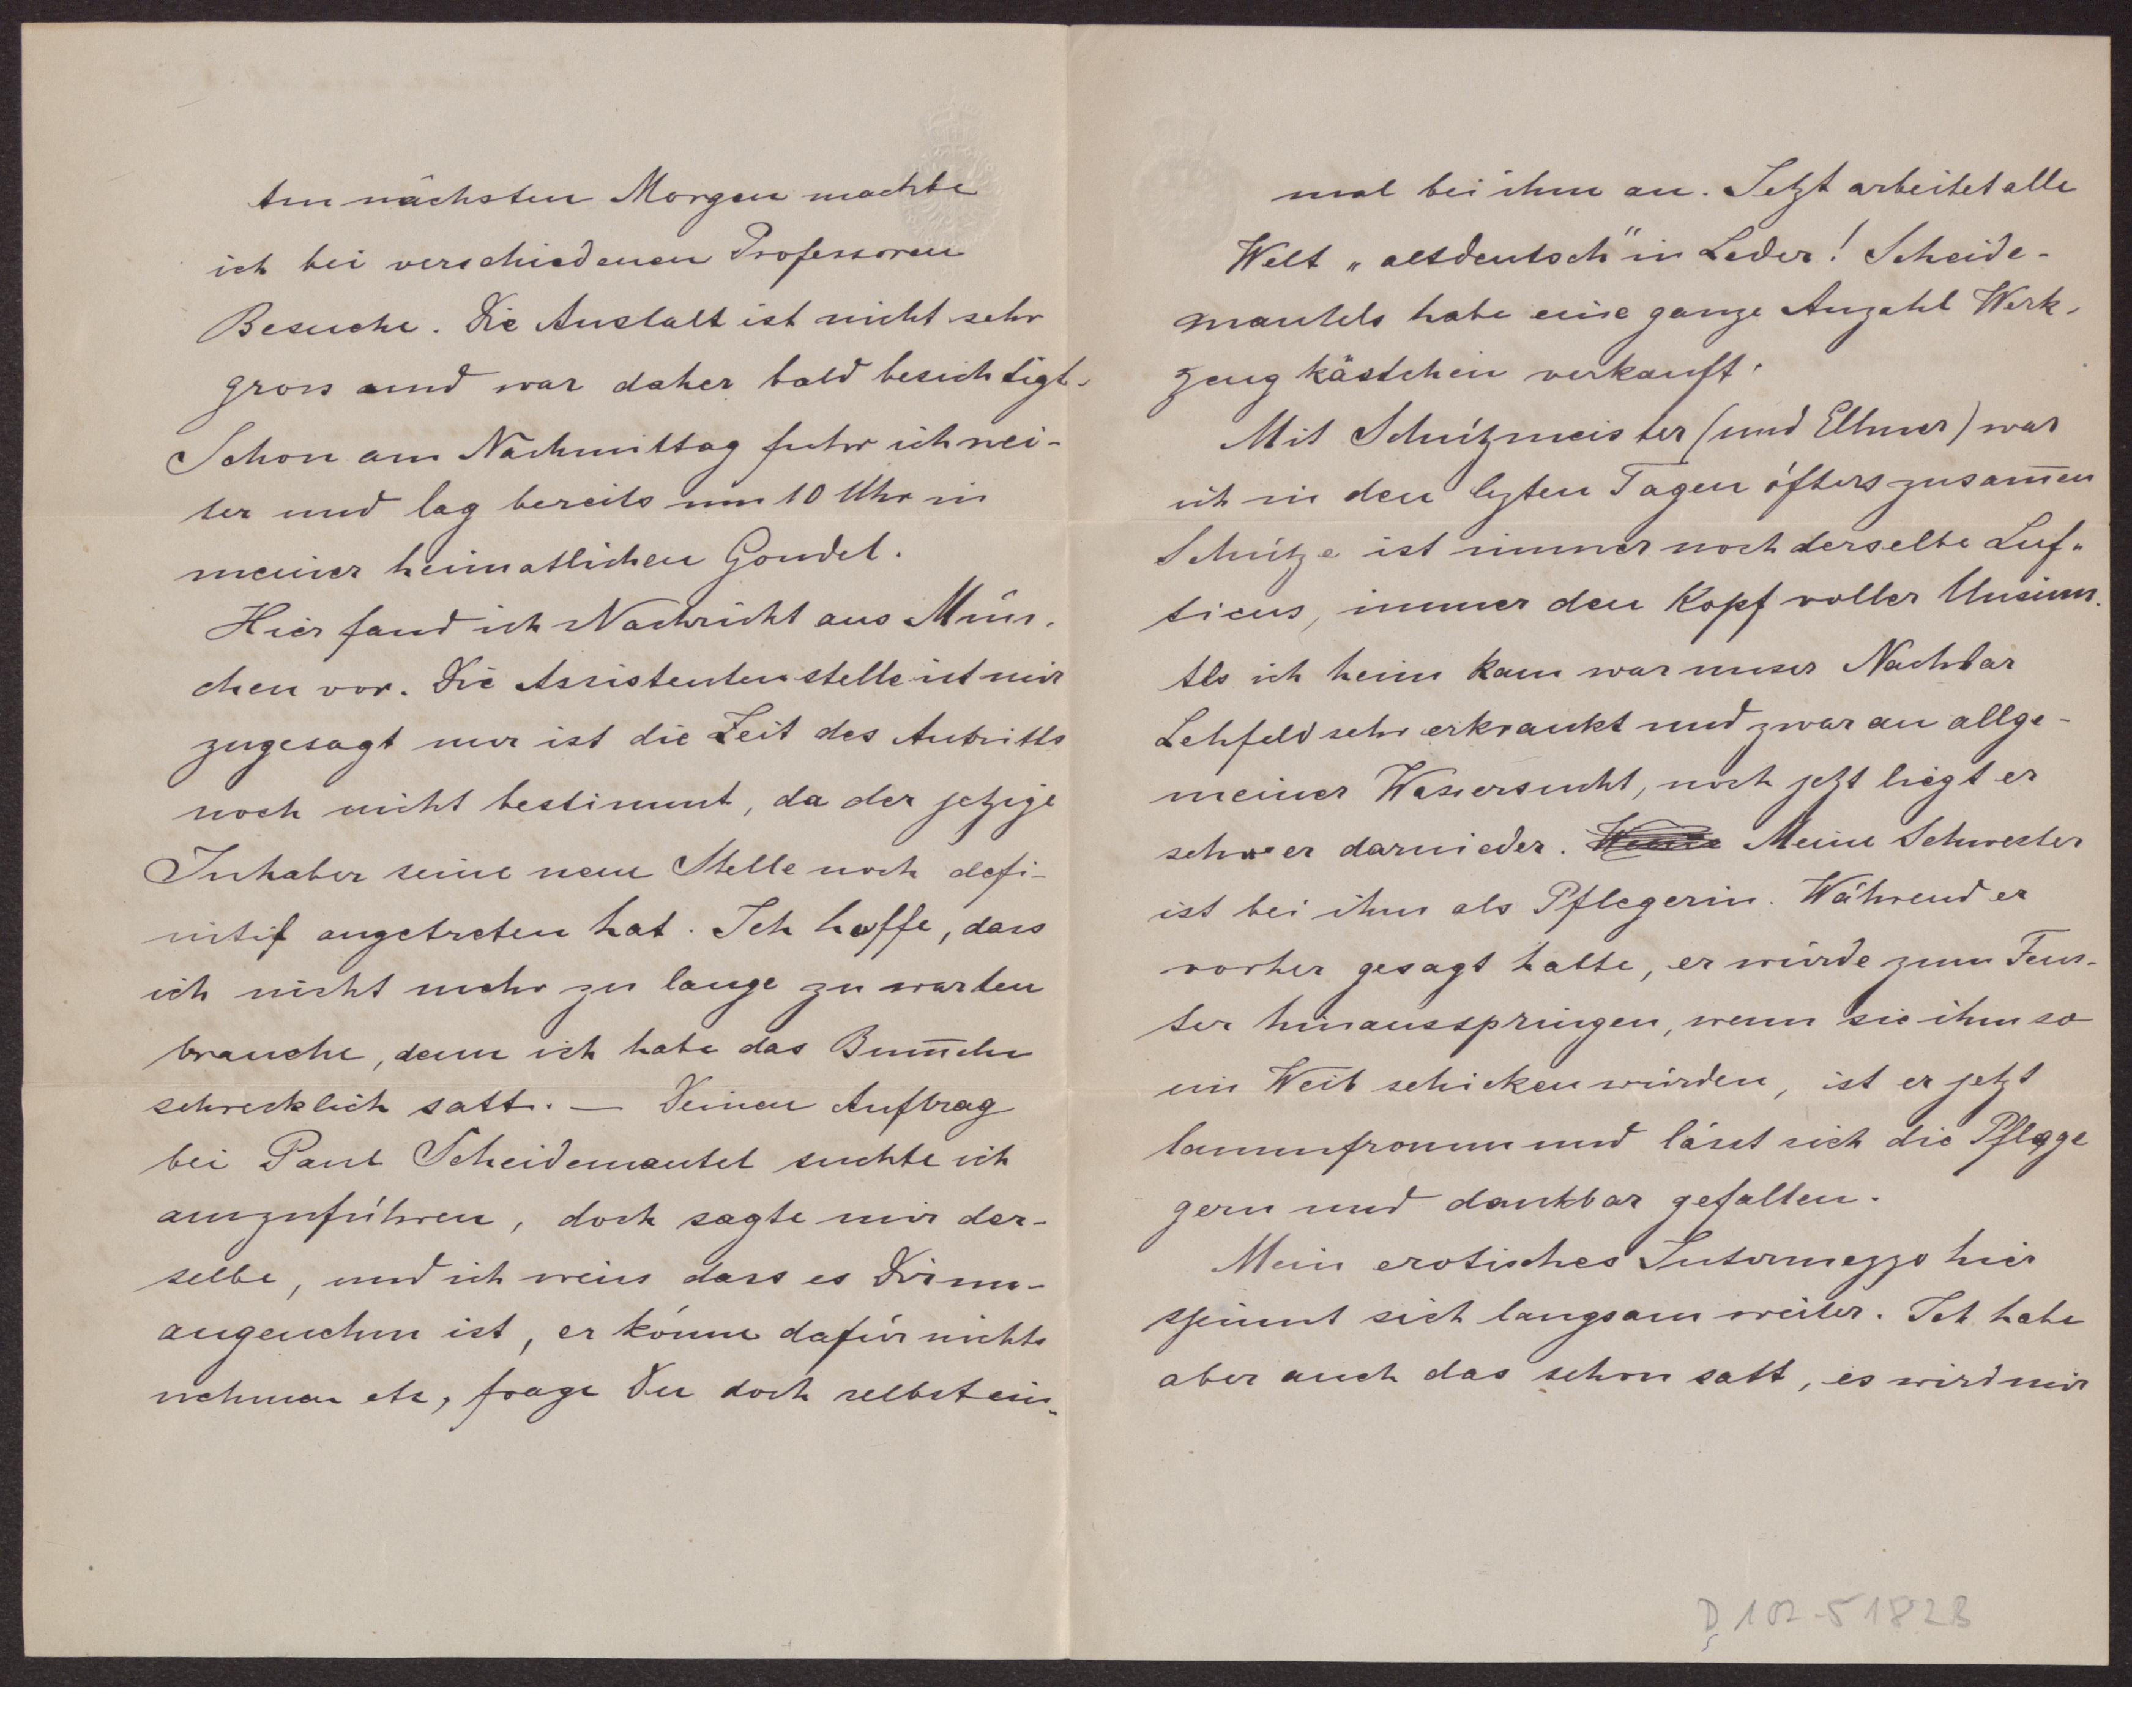 Am nächsten Morgen machte
ich bei verschiedenen Professoren
Besuche. Die Anstalt ist nicht sehr
gross und war daher bald besichtigt.
Schon am Nachmittag fuhr ich wei-
ter und lag bereits um 10 Uhr in
meiner heimatlichen Gondel.
Hier fand ich Nachricht aus Mün-
chen vor. Die Assistentenstelle ist mir
zugesagt nur ist die Zeit des Antritts
noch nicht bestimmt, da der jetzige
Inhaber seine neue Stelle noch defi-
nitif angetreten hat. Ich hoffe, dass
ich nicht mehr zu lange zu warten
brauche, denn ich habe das Bum̅eln
schrecklich satt. — Deinen Auftrag
bei Paul Scheidemantel suchte ich
auszuführen, doch sagte mir der-
selbe, und ich weiss dass es Dir un-
angenehm ist, er könne dafür nichts
nehmen etc, frage Du doch selbst ein-
mal bei ihm an. Jetzt arbeitet alle
Welt „altdeutsch" in Leder! Scheide-
mantels habe eine ganze Anzahl Werk-
zeugkästchen verkauft.
Mit Schützmeister (und Ellmer) war
ich in den lezten Tagen öfters zusam̅en
Schütze ist immer noch derselbe Luf-
ticus, immer den Kopf voller Unsinn.
Als ich heim kam war unser Nachbar
Lehfeld sehr erkrankt und zwar an allge-
meiner Wassersucht, noch jetzt liegt er
schwer darnieder. Meine Schwester
ist bei ihm als Pflegerin. Während er
vorher gesagt hatte, er würde zum Fens-
ter hinausspringen, wenn sie ihm so
ein Weib schicken würden, ist er jetzt
lammfromm und lässt sich die Pflege
gern und dankbar gefallen.
Mein erotisches Intermezzo hier
spinnt sich langsam weiter. Ich habe
aber auch das schon satt, es wird mir
D 102-5182B